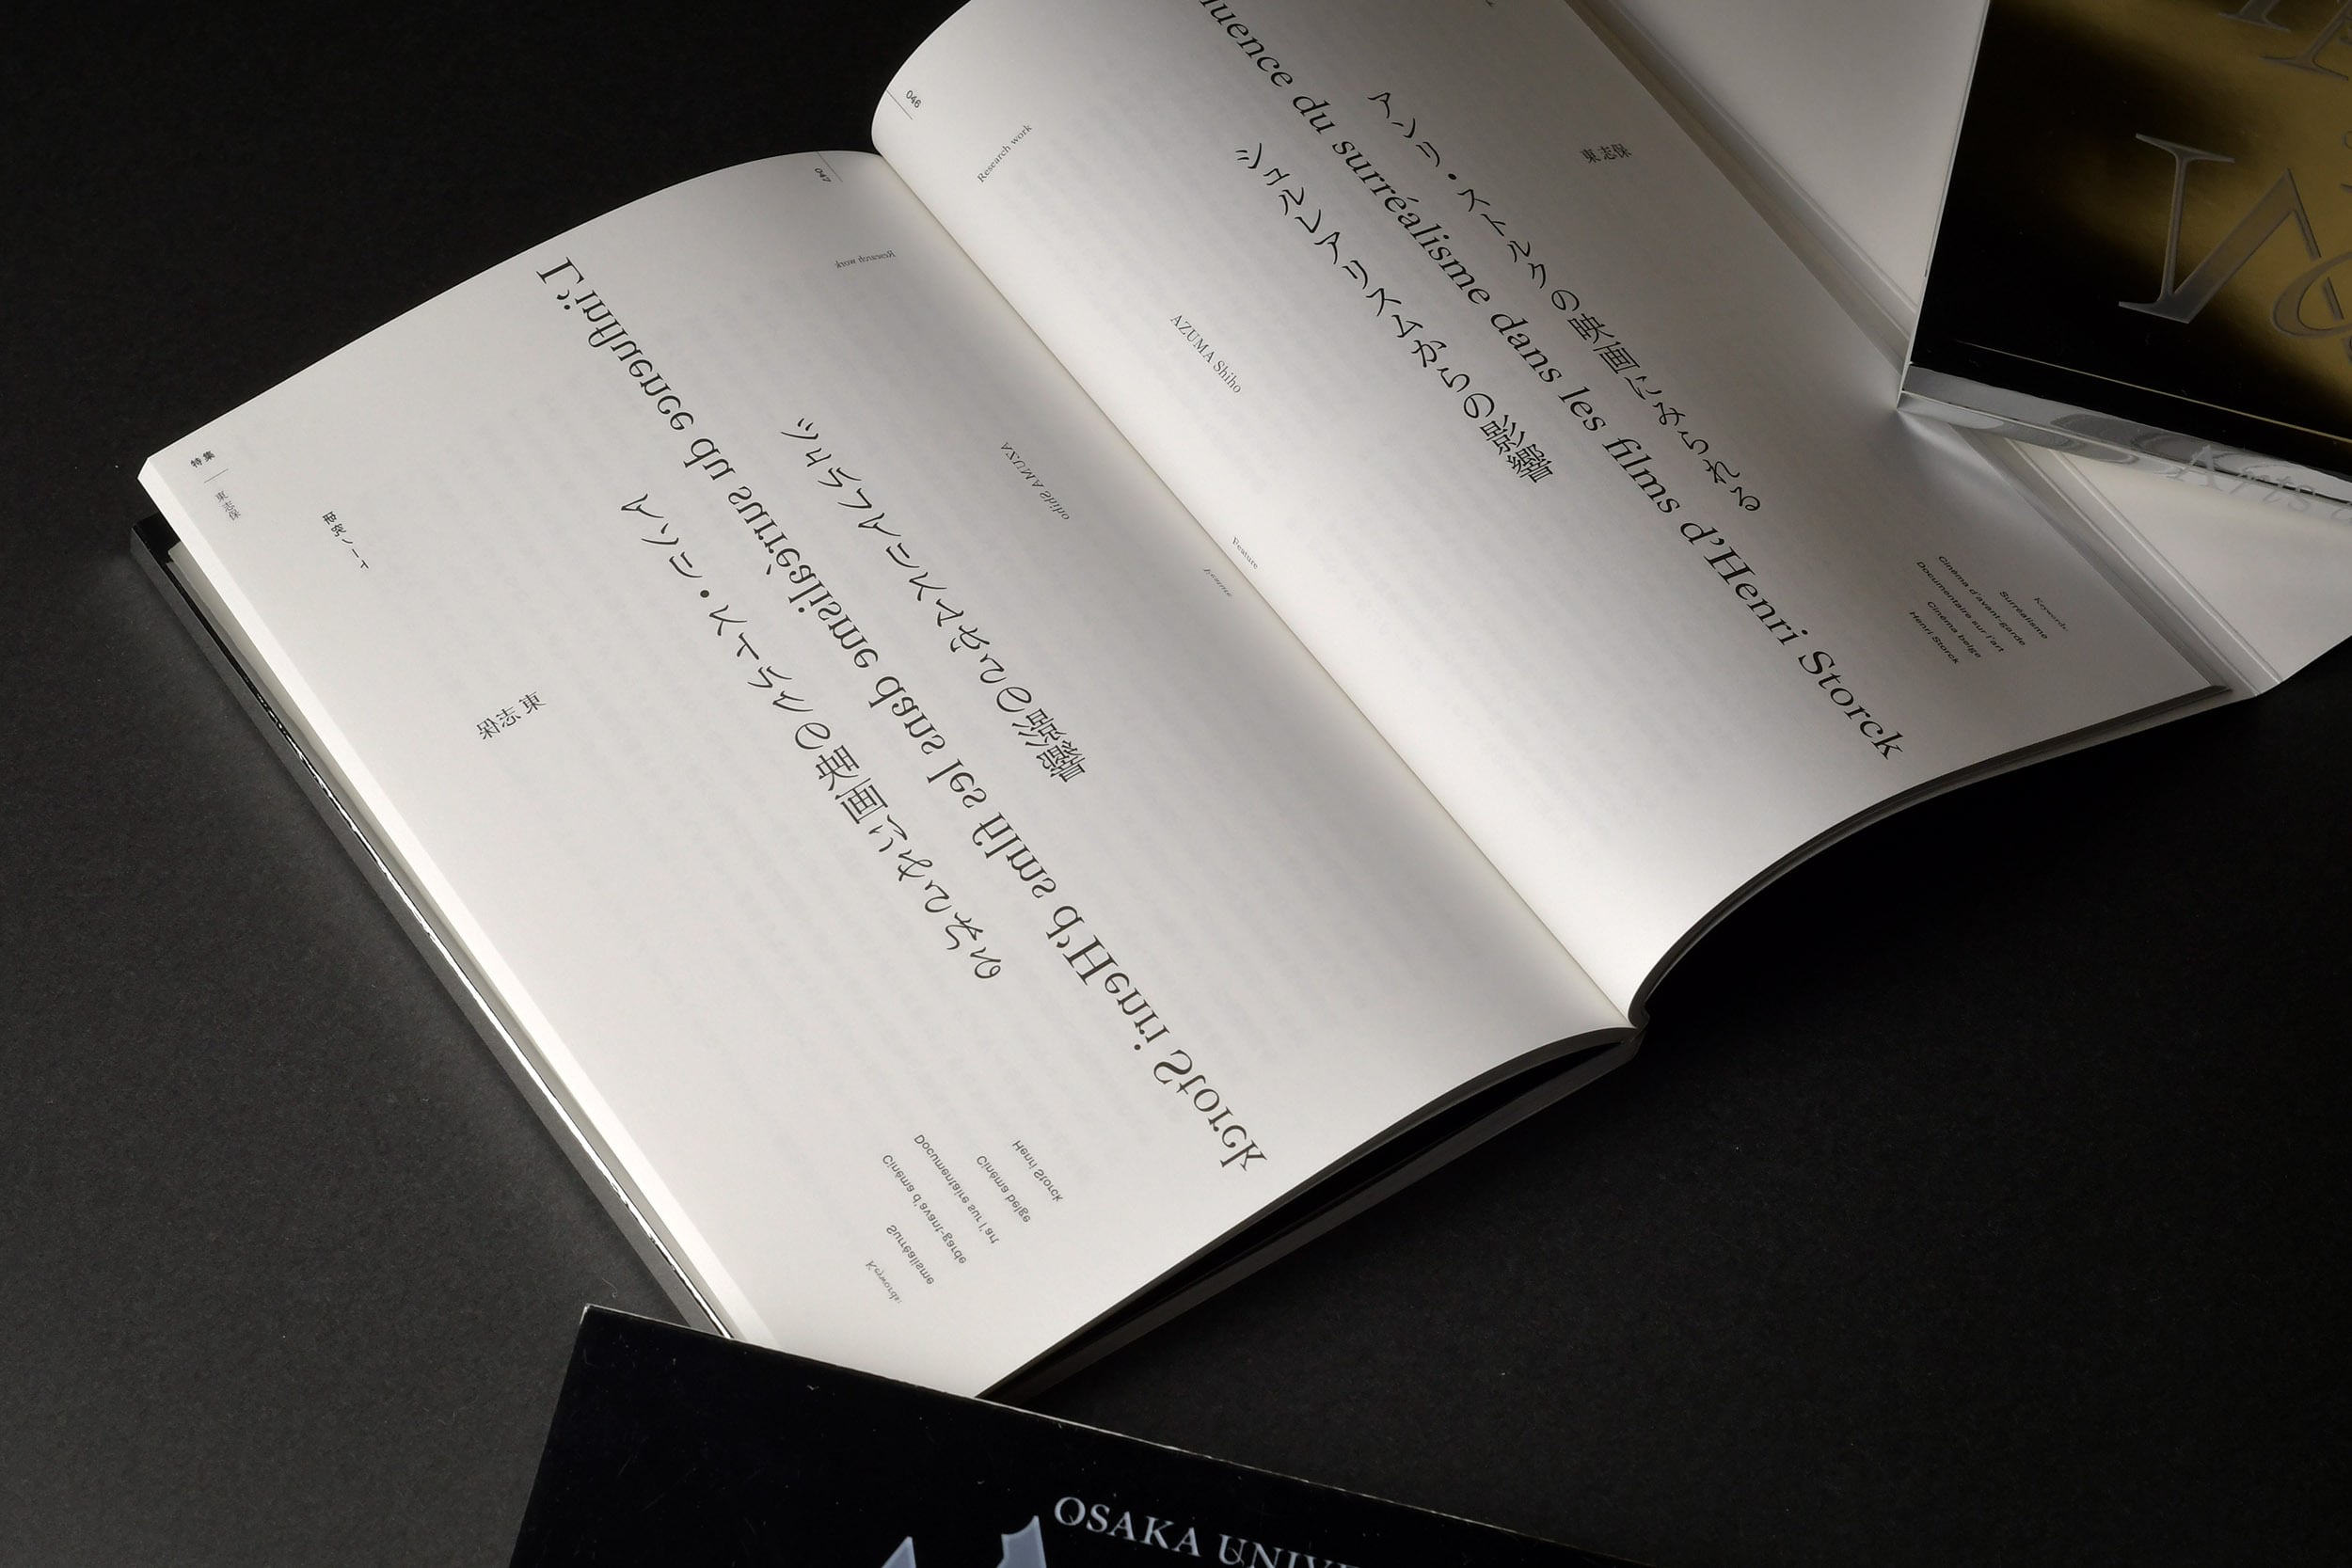 046
Research work
アンリ・ストルクの映画にみられる
シュルレアリスムからの影響
uence du surréalisme dans les films d'Henri Storck
東志保
AZUMA Shiho
Feature
Keywords:
Surréalisme
Cinéma d'avant-garde
Documentaire sur l'art
Cinéma belge
Henri Storck
047
Research work
L'influence du surréalisme dans les films d'Henri Storck
シュルレアリスムからの影響
アンリ・ストルクの映画にみられる
AZUMA Shiho
Feature
特集
東志保
研究ノート
東志保
Henri Storck
Cinéma belge
Documentaire sur l'art
Cinéma d'avant-garde
Surréalisme
Keywords:
Arts
OSAKA UNIVE